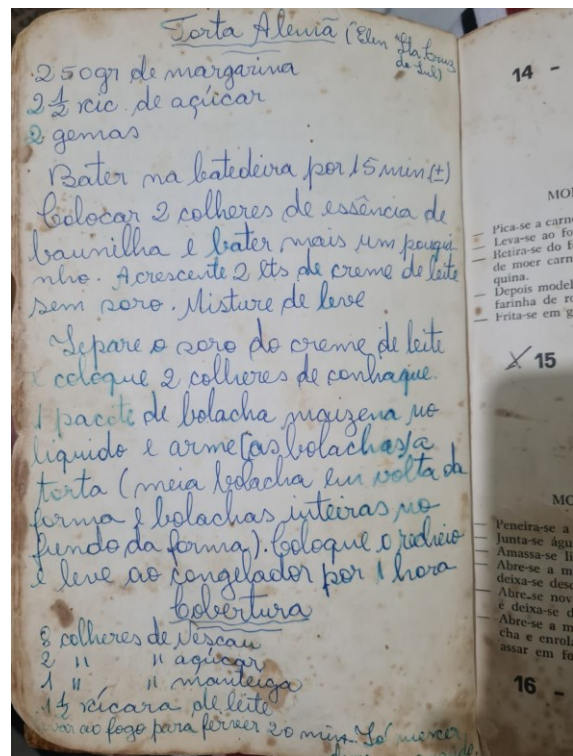 Torta Alemã (Elen Sta Cruz
do Sul)
250gr de margarina
2 1/2 xic. de açúcar
2 gemas
Bater na batedeira por 15 min (±)
Colocar 2 colheres de essência de
baunilha e bater mais um pougui
nho. Acrescente 2 lts de creme de leite
sem soro. Misture de leve
Separe o soro do creme de leite
e coloque 2 colheres de conhaque.
1 pacote de bolacha maizena no
líquido e arme (as bolachas) a
torta (meia bolacha em volta da
forma e bolachas inteiras no
fundo da forma). Coloque o recheio
e leve ao congelador por 1 hora
Cobertura
8 colheres de Nescau
2 " " açúcar
1 " " manteiga
1 1/2 xícara de leite
levar ao fogo para ferver 20 min. Só mexer
14 -
MO
Pica-se a carn
Leva-se ao fo
Retira-se do f
de moer carn
quina.
Depois model
farinha de ro
Frita-se em g
X 15
MO
Peneira-se a
Junta-se águ
Amassa-se li
Abre-se a m
deixa-se desc
Abre-se nov
e deixa-se d
Abre-se a m
cha e enrola
assar em fo
16 -